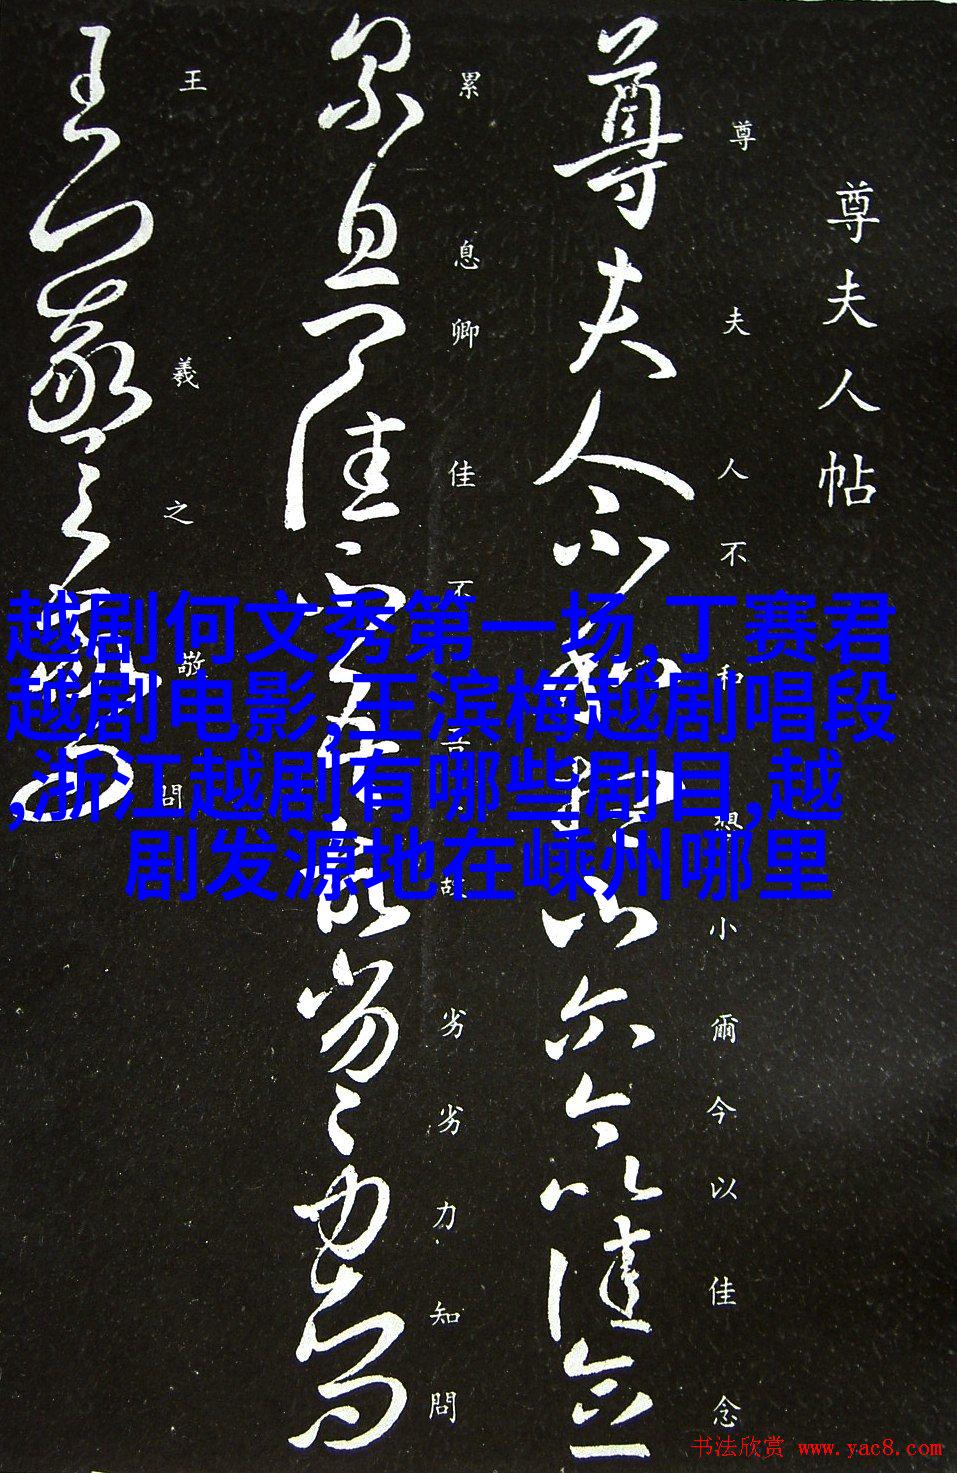 尊夫人帖
尊夫人不和想小爾今以佳念
累息卿佳不吾故劣劣力知問
王羲之敬問
越剧何文秀第一场,丁赛君
越剧电影,王滨梅越剧唱段
,浙江越剧有哪些剧目,越
剧发源地在嵊州哪里
书法欣赏 www.yac8.com